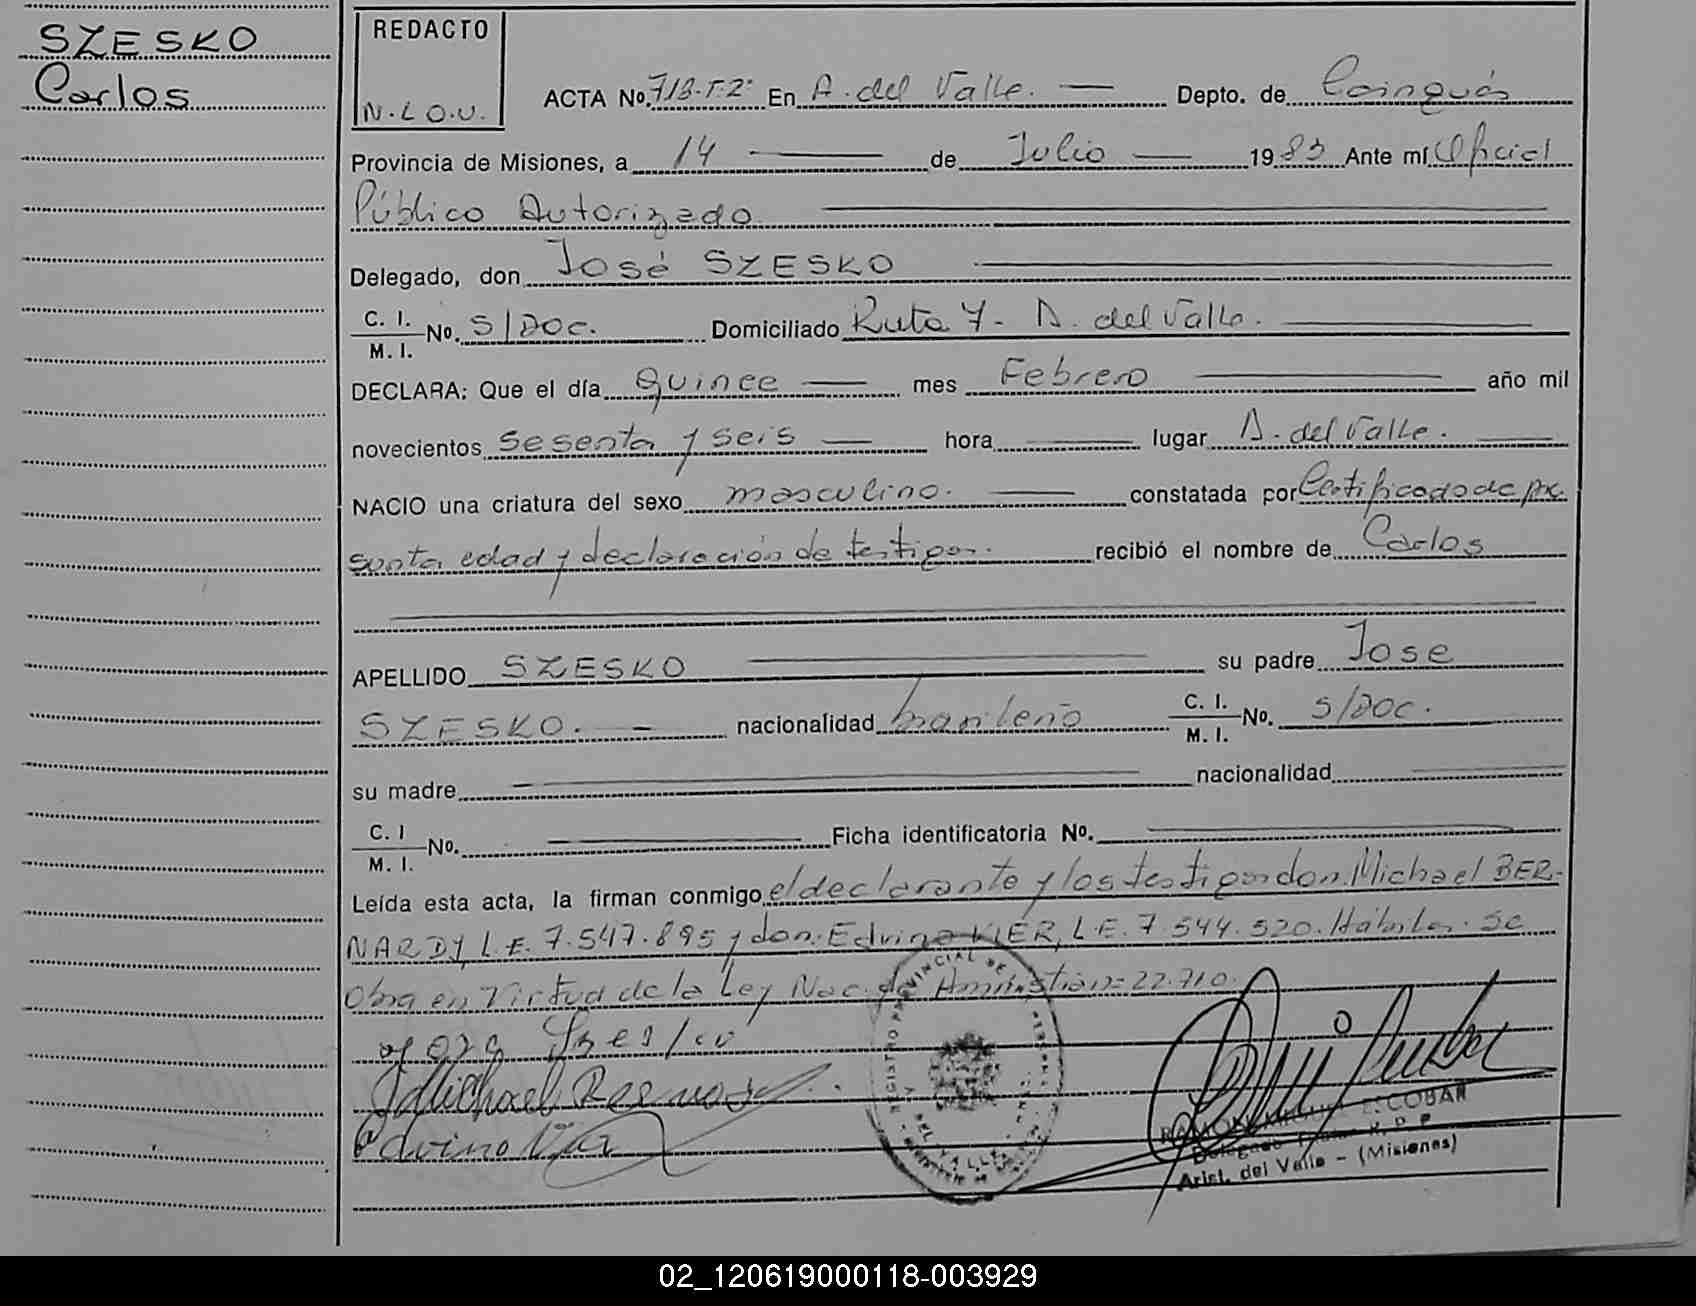 SZESKO
Carlos
REDACTO
N.L.O.U.
ACTA No. 713-T.2º En A. del Valle. Depto. de Cainguás
Provincia de Misiones, a 14 de Julio 1983 Ante mí Oficial
Público Autorizado
Delegado, don José SZESKO
C. I. M. I. No. S/Doc. Domiciliado Ruta 7- A. del Valle.
DECLARA: Que el día quince mes Febrero año mil
novecientos sesenta y seis hora lugar A. del Valle.
NACIO una criatura del sexo masculino. constatada por Certificado de pre
sunta edad y declaración de testigos. recibió el nombre de Carlos
APELLIDO SZESKO su padre Jose
SZESKO. nacionalidad brasileño C. I. M. I. No. S/Doc.
su madre nacionalidad
C. I M. I. No. Ficha identificatoria No.
Leída esta acta, la firman conmigo el declarante y los testigos don Michael BER-
NARDY, L.E. 7.547.895 y don: Edvino VIER, L.E. 7.544.520. Hábiles. Se
Obra en Virtud de la Ley Nac. de Amnistía= 22.710.
Szesko
Michael
Edvino Vier
REGISTRO PROVINCIAL DE
DEL VALLE
ESCOBAR
Delegado R. P. P.
Arist. del Valle - (Misiones)
02_120619000118-003929